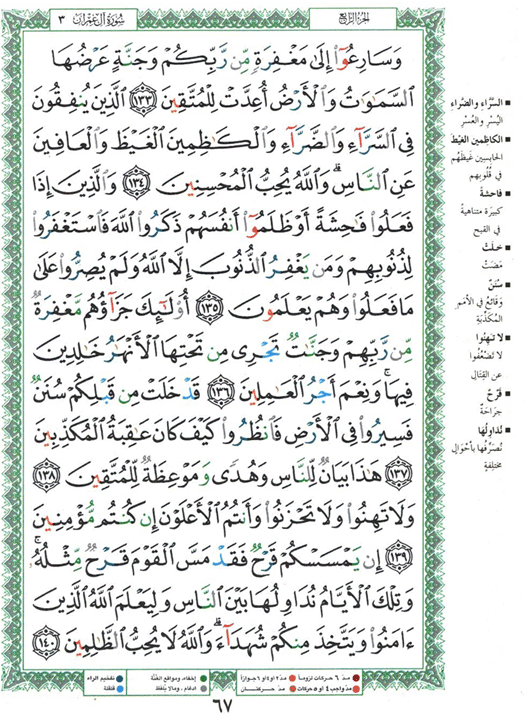 الجزء الرابع
سورة آل عمران ٣
وَسَارِعُوٓا۟ إِلَىٰ مَغْفِرَةٍ مِّن رَّبِّكُمْ وَجَنَّةٍ عَرْضُهَا
السَّمَـٰوَٰتُ وَالْأَرْضُ أُعِدَّتْ لِلْمُتَّقِينَ ١٣٣ الَّذِينَ يُنفِقُونَ
فِى السَّرَّآءِ وَالضَّرَّآءِ وَالْكَـٰظِمِينَ الْغَيْظَ وَالْعَافِينَ
عَنِ النَّاسِ ۗ وَاللَّهُ يُحِبُّ الْمُحْسِنِينَ ١٣٤ وَالَّذِينَ إِذَا
فَعَلُوا۟ فَـٰحِشَةً أَوْ ظَلَمُوٓا۟ أَنفُسَهُمْ ذَكَرُوا۟ اللَّهَ فَاسْتَغْفَرُوا۟
لِذُنُوبِهِمْ وَمَن يَغْفِرُ الذُّنُوبَ إِلَّا اللَّهُ وَلَمْ يُصِرُّوا۟ عَلَىٰ
مَا فَعَلُوا۟ وَهُمْ يَعْلَمُونَ ١٣٥ أُو۟لَـٰٓئِكَ جَزَآؤُهُم مَّغْفِرَةٌ
مِّن رَّبِّهِمْ وَجَنَّـٰتٌ تَجْرِى مِن تَحْتِهَا الْأَنْهَـٰرُ خَـٰلِدِينَ
فِيهَا ۚ وَنِعْمَ أَجْرُ الْعَـٰمِلِينَ ١٣٦ قَدْ خَلَتْ مِن قَبْلِكُمْ سُنَنٌ
فَسِيرُوا۟ فِى الْأَرْضِ فَانظُرُوا۟ كَيْفَ كَانَ عَـٰقِبَةُ الْمُكَذِّبِينَ
١٣٧ هَـٰذَا بَيَانٌ لِّلنَّاسِ وَهُدًى وَمَوْعِظَةٌ لِّلْمُتَّقِينَ ١٣٨
وَلَا تَهِنُوا۟ وَلَا تَحْزَنُوا۟ وَأَنتُمُ الْأَعْلَوْنَ إِن كُنتُم مُّؤْمِنِينَ
١٣٩ إِن يَمْسَسْكُمْ قَرْحٌ فَقَدْ مَسَّ الْقَوْمَ قَرْحٌ مِّثْلُهُۥ ۚ
وَتِلْكَ الْأَيَّامُ نُدَاوِلُهَا بَيْنَ النَّاسِ وَلِيَعْلَمَ اللَّهُ الَّذِينَ
ءَامَنُوا۟ وَيَتَّخِذَ مِنكُمْ شُهَدَآءَ ۗ وَاللَّهُ لَا يُحِبُّ الظَّـٰلِمِينَ ١٤٠
■ السَّرَّاءِ والضَّرَّاءِ
اليُسْرِ والعُسْرِ
■ الكاظِمين الغَيْظَ
الحابِسِين غَيْظَهُم
فِي قُلُوبِهِم
■ فاحِشةً
كبيرَة متناهيةً
في القبح
■ خلَتْ
مَضَتْ
■ سُنَنٌ
وَقَائِعُ في الأمَمِ
المُكَذِّبَةِ
■ لا تَهِنُوا
لا تَضْعُفُوا
عن القِتَالِ
■ قَرْحٌ
جِرَاحَةٌ
■ نُدَاوِلُهَا
نُصَرِّفُها بأحْوَالٍ
مختلِفةٍ
مدّ ٦ حركات لزوماً
مدّ ٢ أو ٤ أو ٦ جوازاً
إخفاء، ومواقع الغُنَّة
تفخيم الراء
مدّ واجب ٤ أو ٥ حركات
مدّ حركتان
ادغام، ومالا يُلفَظ
قلقلة
٦٧